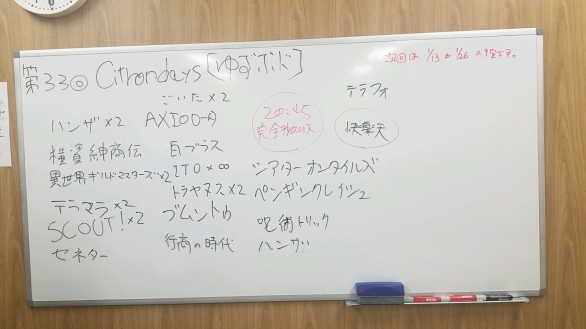 第33回 Citrondays [ゆずボド]
次回は 1/13 か 1/26 の予定です。
ごいた×2
ハンザ×2
AXIO ロータ
横濱紳商伝
異世界ギルドマスターズ×2
ITO×∞
テラマラ×2
SCOUT!×2
セネター
トラヤヌス×2
ブムントゥ
行商の時代
20:45
完全撤収
シアター オン タイルズ
ペンギンクレイジー2
呪術トリック
ハンザ
テラフォ
快楽天